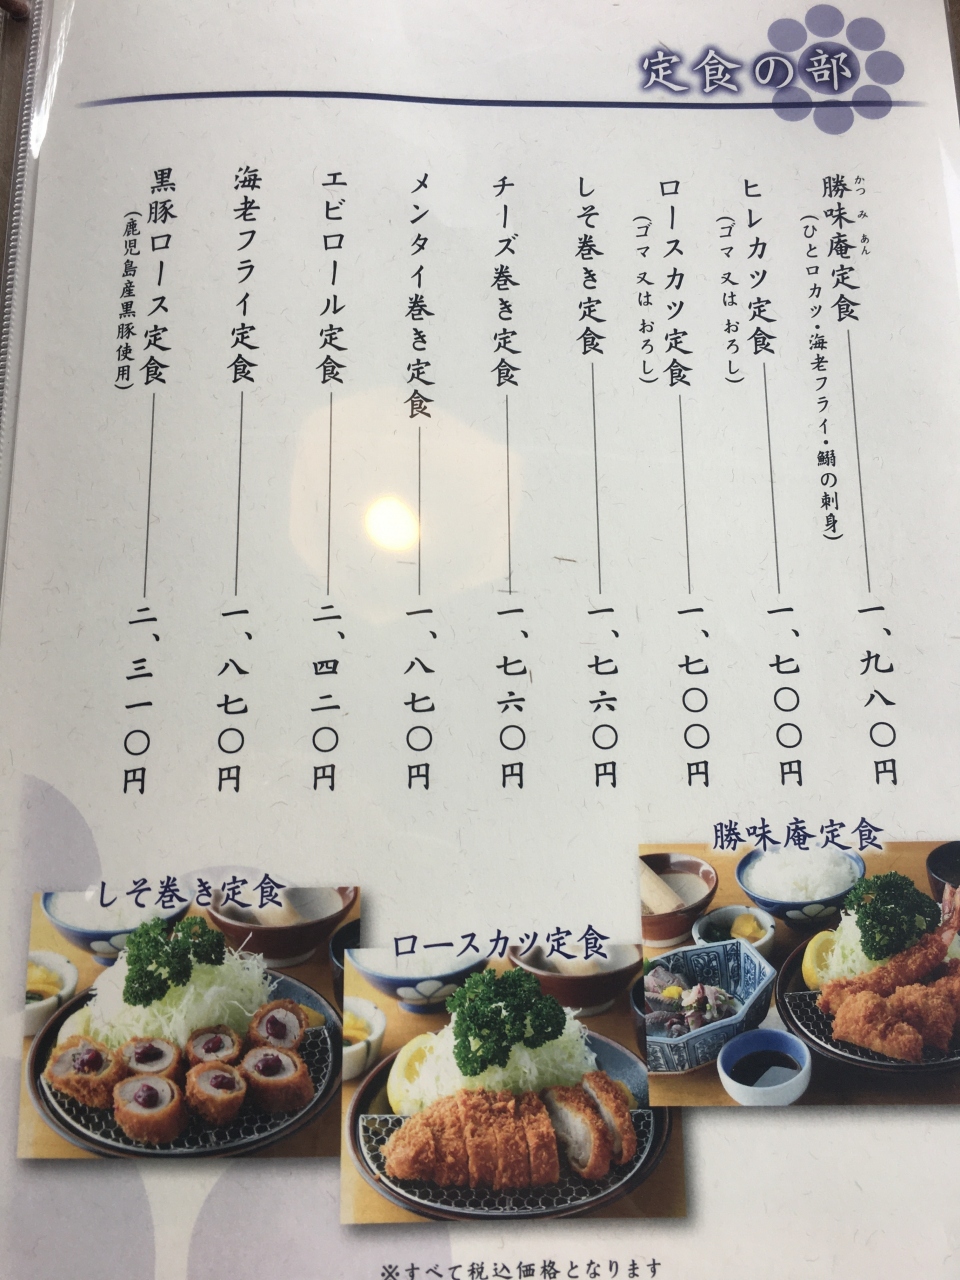 定食の部
勝味庵定食
かつ み あん
(ひと口カツ・海老フライ・鰯の刺身)
一、九八〇円
ヒレカツ定食
(ゴマ 又は おろし)
一、七〇〇円
ロースカツ定食
(ゴマ 又は おろし)
一、七〇〇円
しそ巻き定食
一、七六〇円
チーズ巻き定食
一、七六〇円
メンタイ巻き定食
一、八七〇円
エビロール定食
二、四二〇円
海老フライ定食
一、八七〇円
黒豚ロース定食
(鹿児島産黒豚使用)
二、三一〇円
勝味庵定食
しそ巻き定食
ロースカツ定食
※すべて税込価格となります